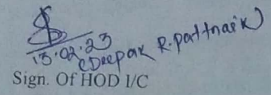 13.02.23
(Deepak R. pattnaik)
Sign. Of HOD I/C